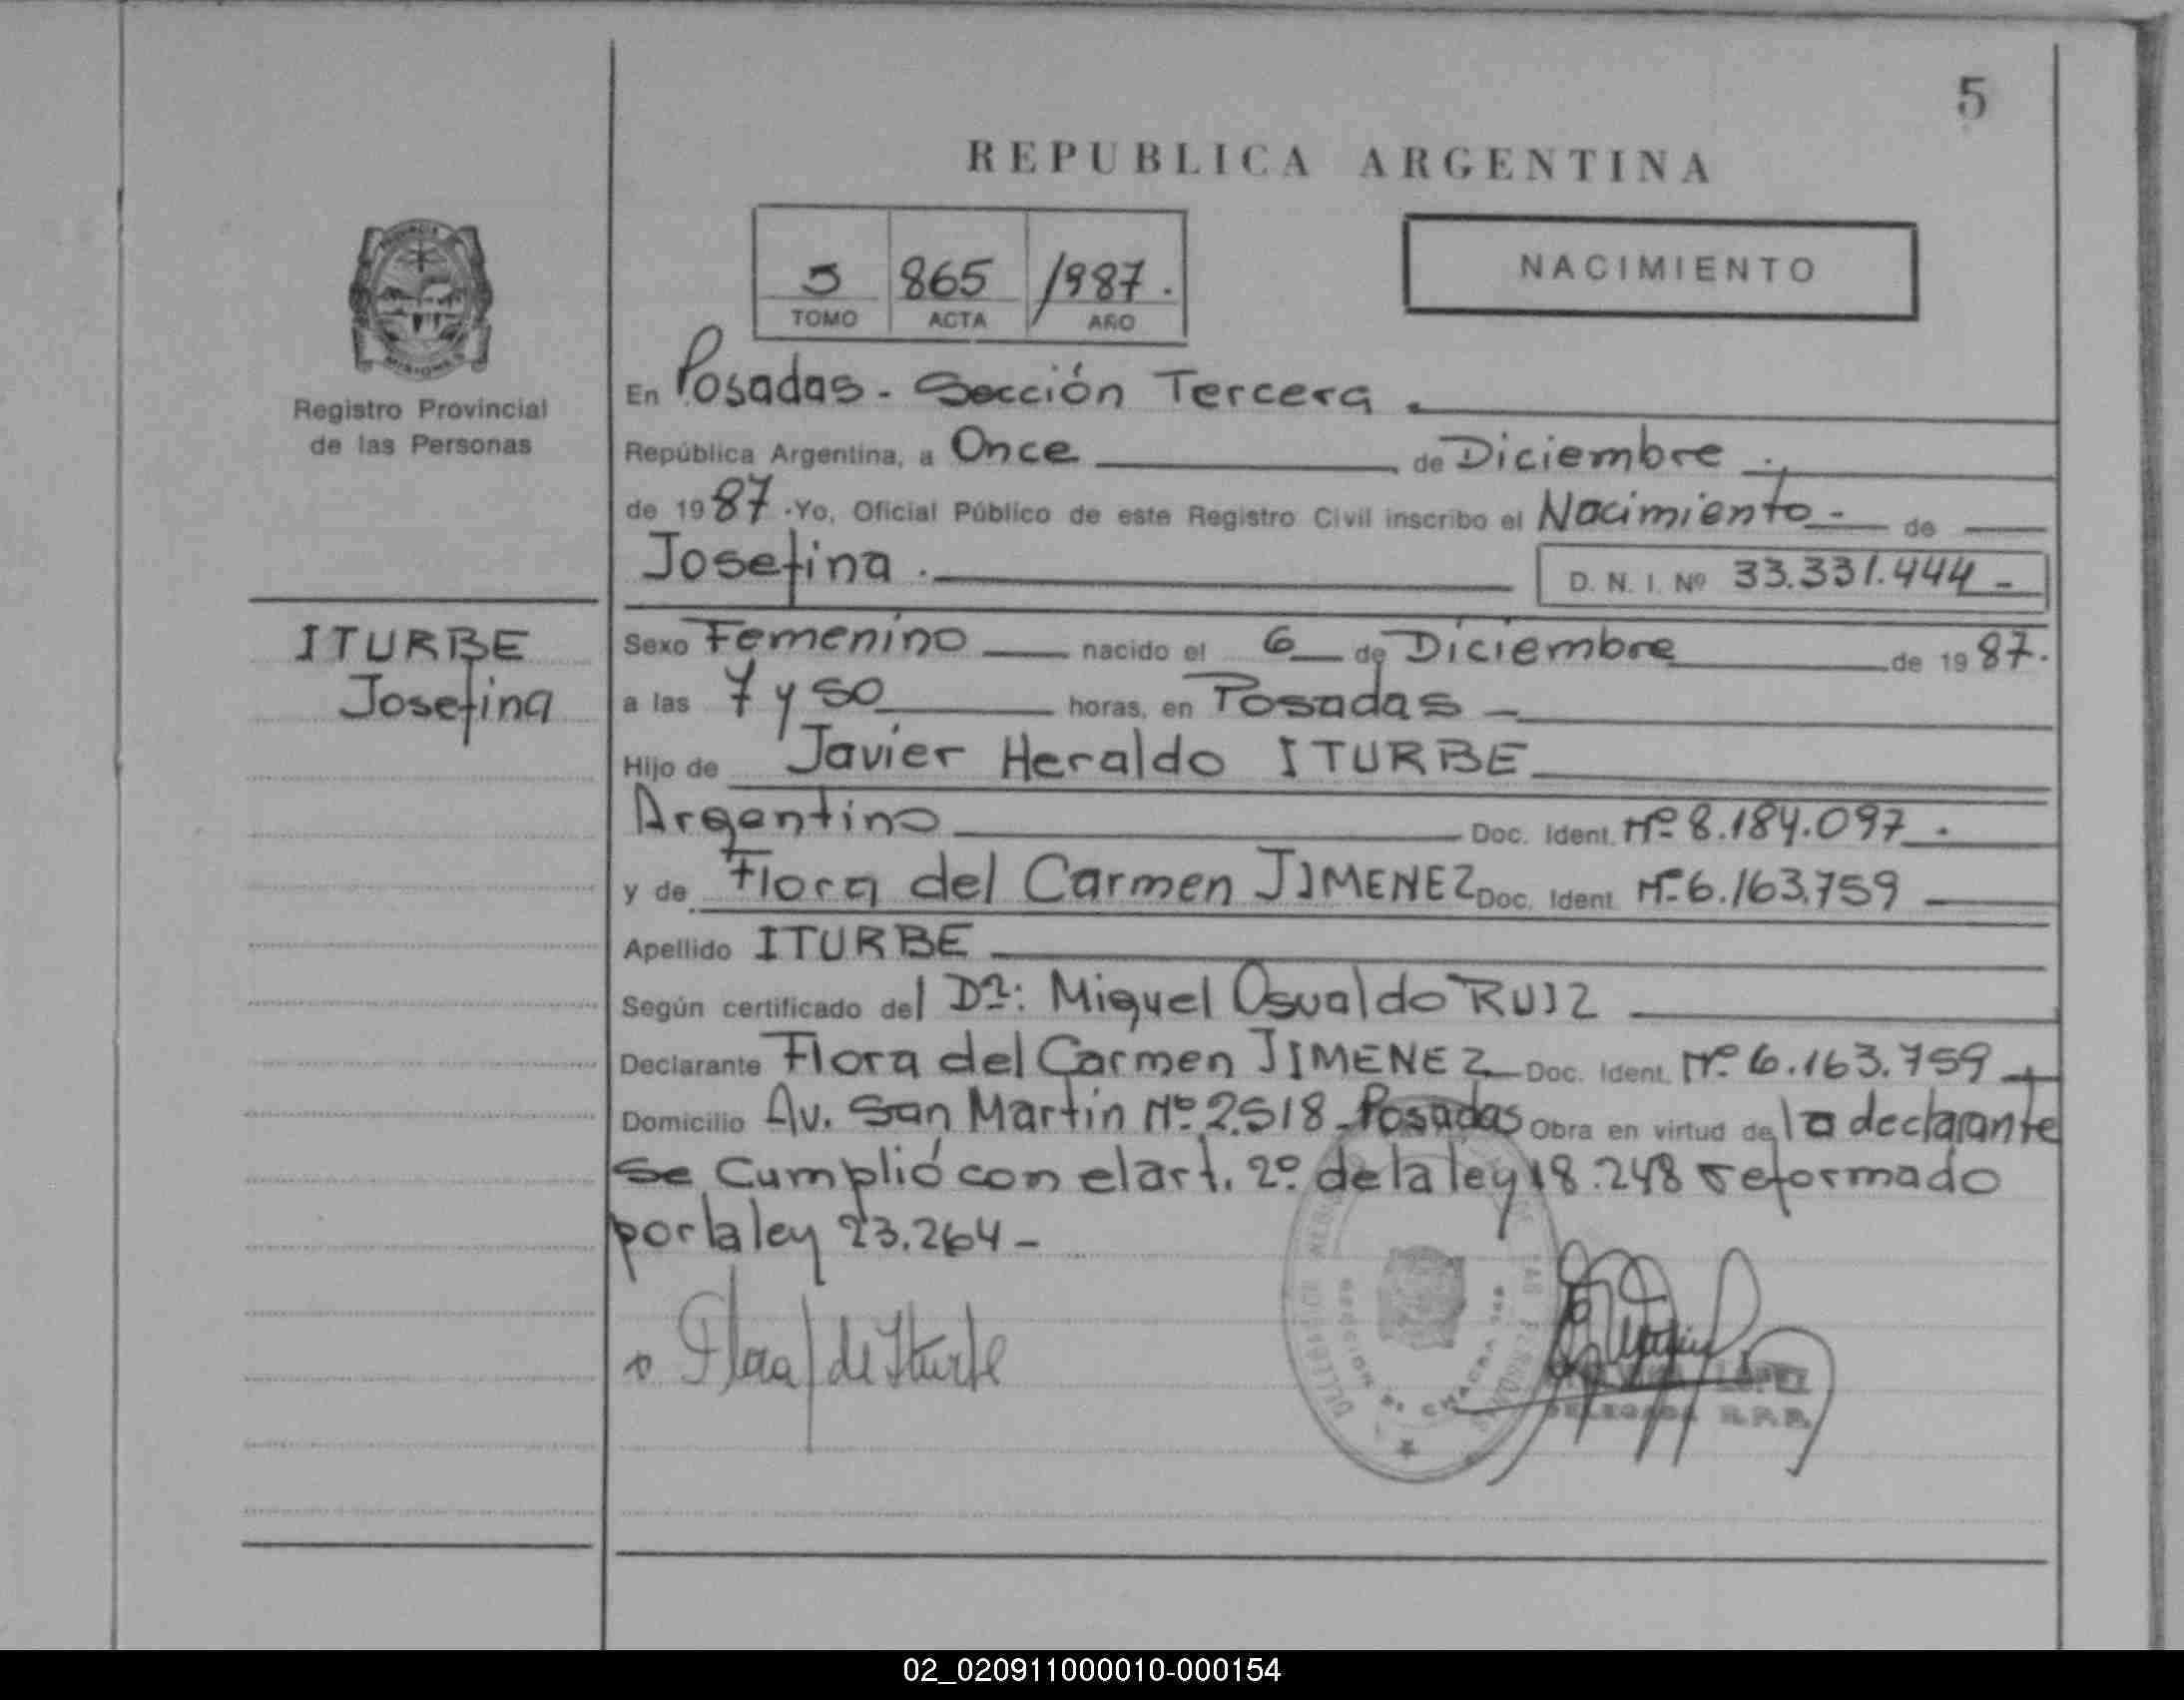 5
REPUBLICA ARGENTINA
5 865 1987.
TOMO ACTA AÑO
NACIMIENTO
Registro Provincial
de las Personas
En Posadas - Sección Tercera.
República Argentina, a Once de Diciembre.
de 1987. Yo, Oficial Público de este Registro Civil inscribo el Nacimiento.- de
Josefina. D. N. I. Nº 33.331.444 -
ITURBE
Josefina
Sexo Femenino nacido el 6 de Diciembre de 1987.
a las 7 y 50 horas, en Posadas -
Hijo de Javier Heraldo ITURBE
Argentino Doc. Ident. Nº 8.184.097.
y de Flora del Carmen JIMENEZ Doc. Ident. Nº 6.163.759
Apellido ITURBE
Según certificado del Dr: Miguel Osvaldo RUIZ
Declarante Flora del Carmen JIMENEZ Doc. Ident. Nº 6.163.759
Domicilio Av. San Martin Nº 2.518 - Posadas Obra en virtud de la declarante
Se Cumplió con el art. 2º de la ley 18.248 reformado
por la ley 23.264 -
Flora J de Iturbe
SECCION CHACRA
LOPEZ
DELEGADA R.P.P.
02_020911000010-000154